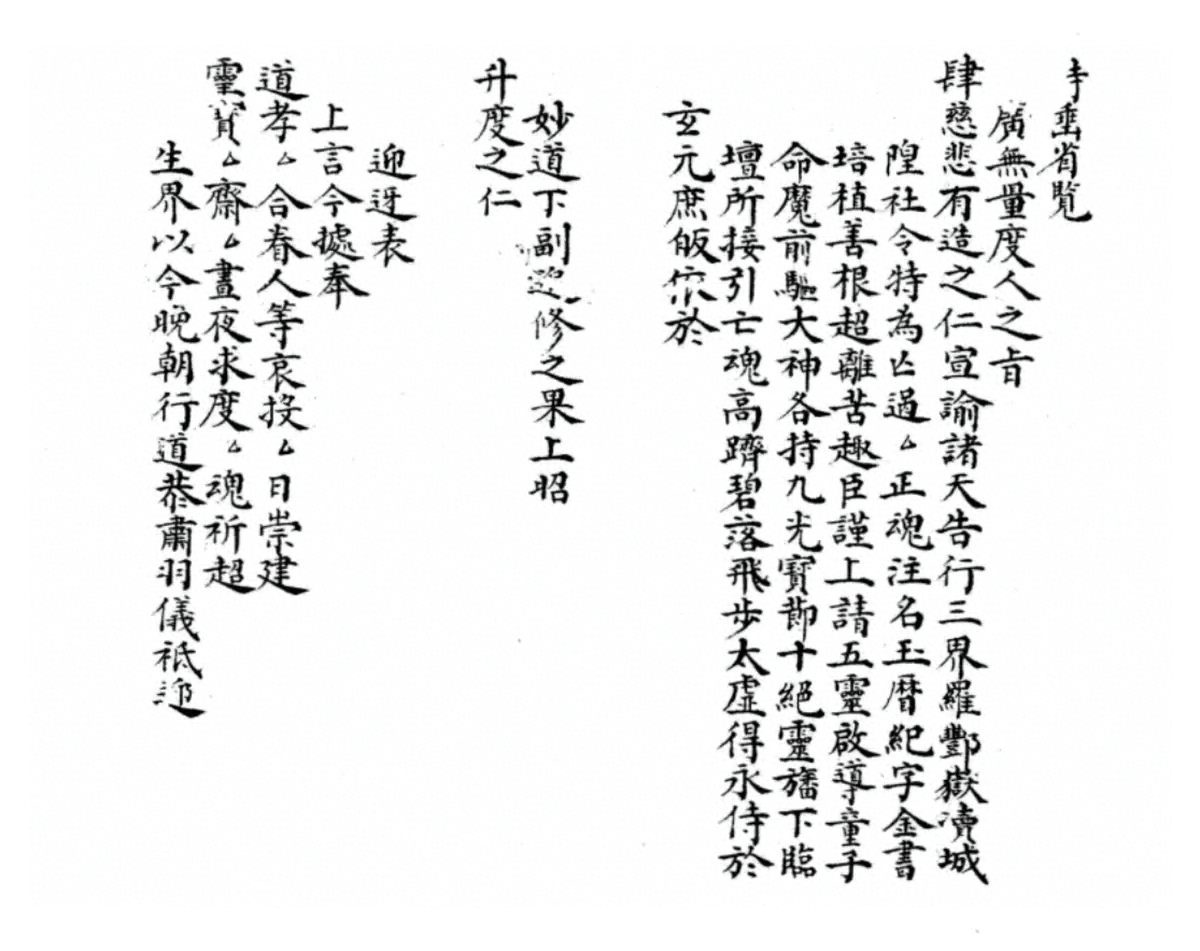 垂省覽
廣無量度人之旨
肆慈悲有造之仁宣諭諸天告行三界羅酆嶽瀆城
隍社令特為亡過厶正魂注名玉曆紀字金書
培植善根超離苦趣臣謹上請五靈啟導童子
命魔前驅大神各持九光寶節十絕靈旛下臨
壇所接引亡魂高躋碧落飛步太虛得永侍於
玄元庶皈依於
妙道下副追修之果上昭
升度之仁
迎迓表
上言今據奉
道孝厶合眷人等哀投厶日崇建
靈寶厶齋厶晝夜求度厶魂祈超
生界以今晚朝行道恭肅羽儀祗迎